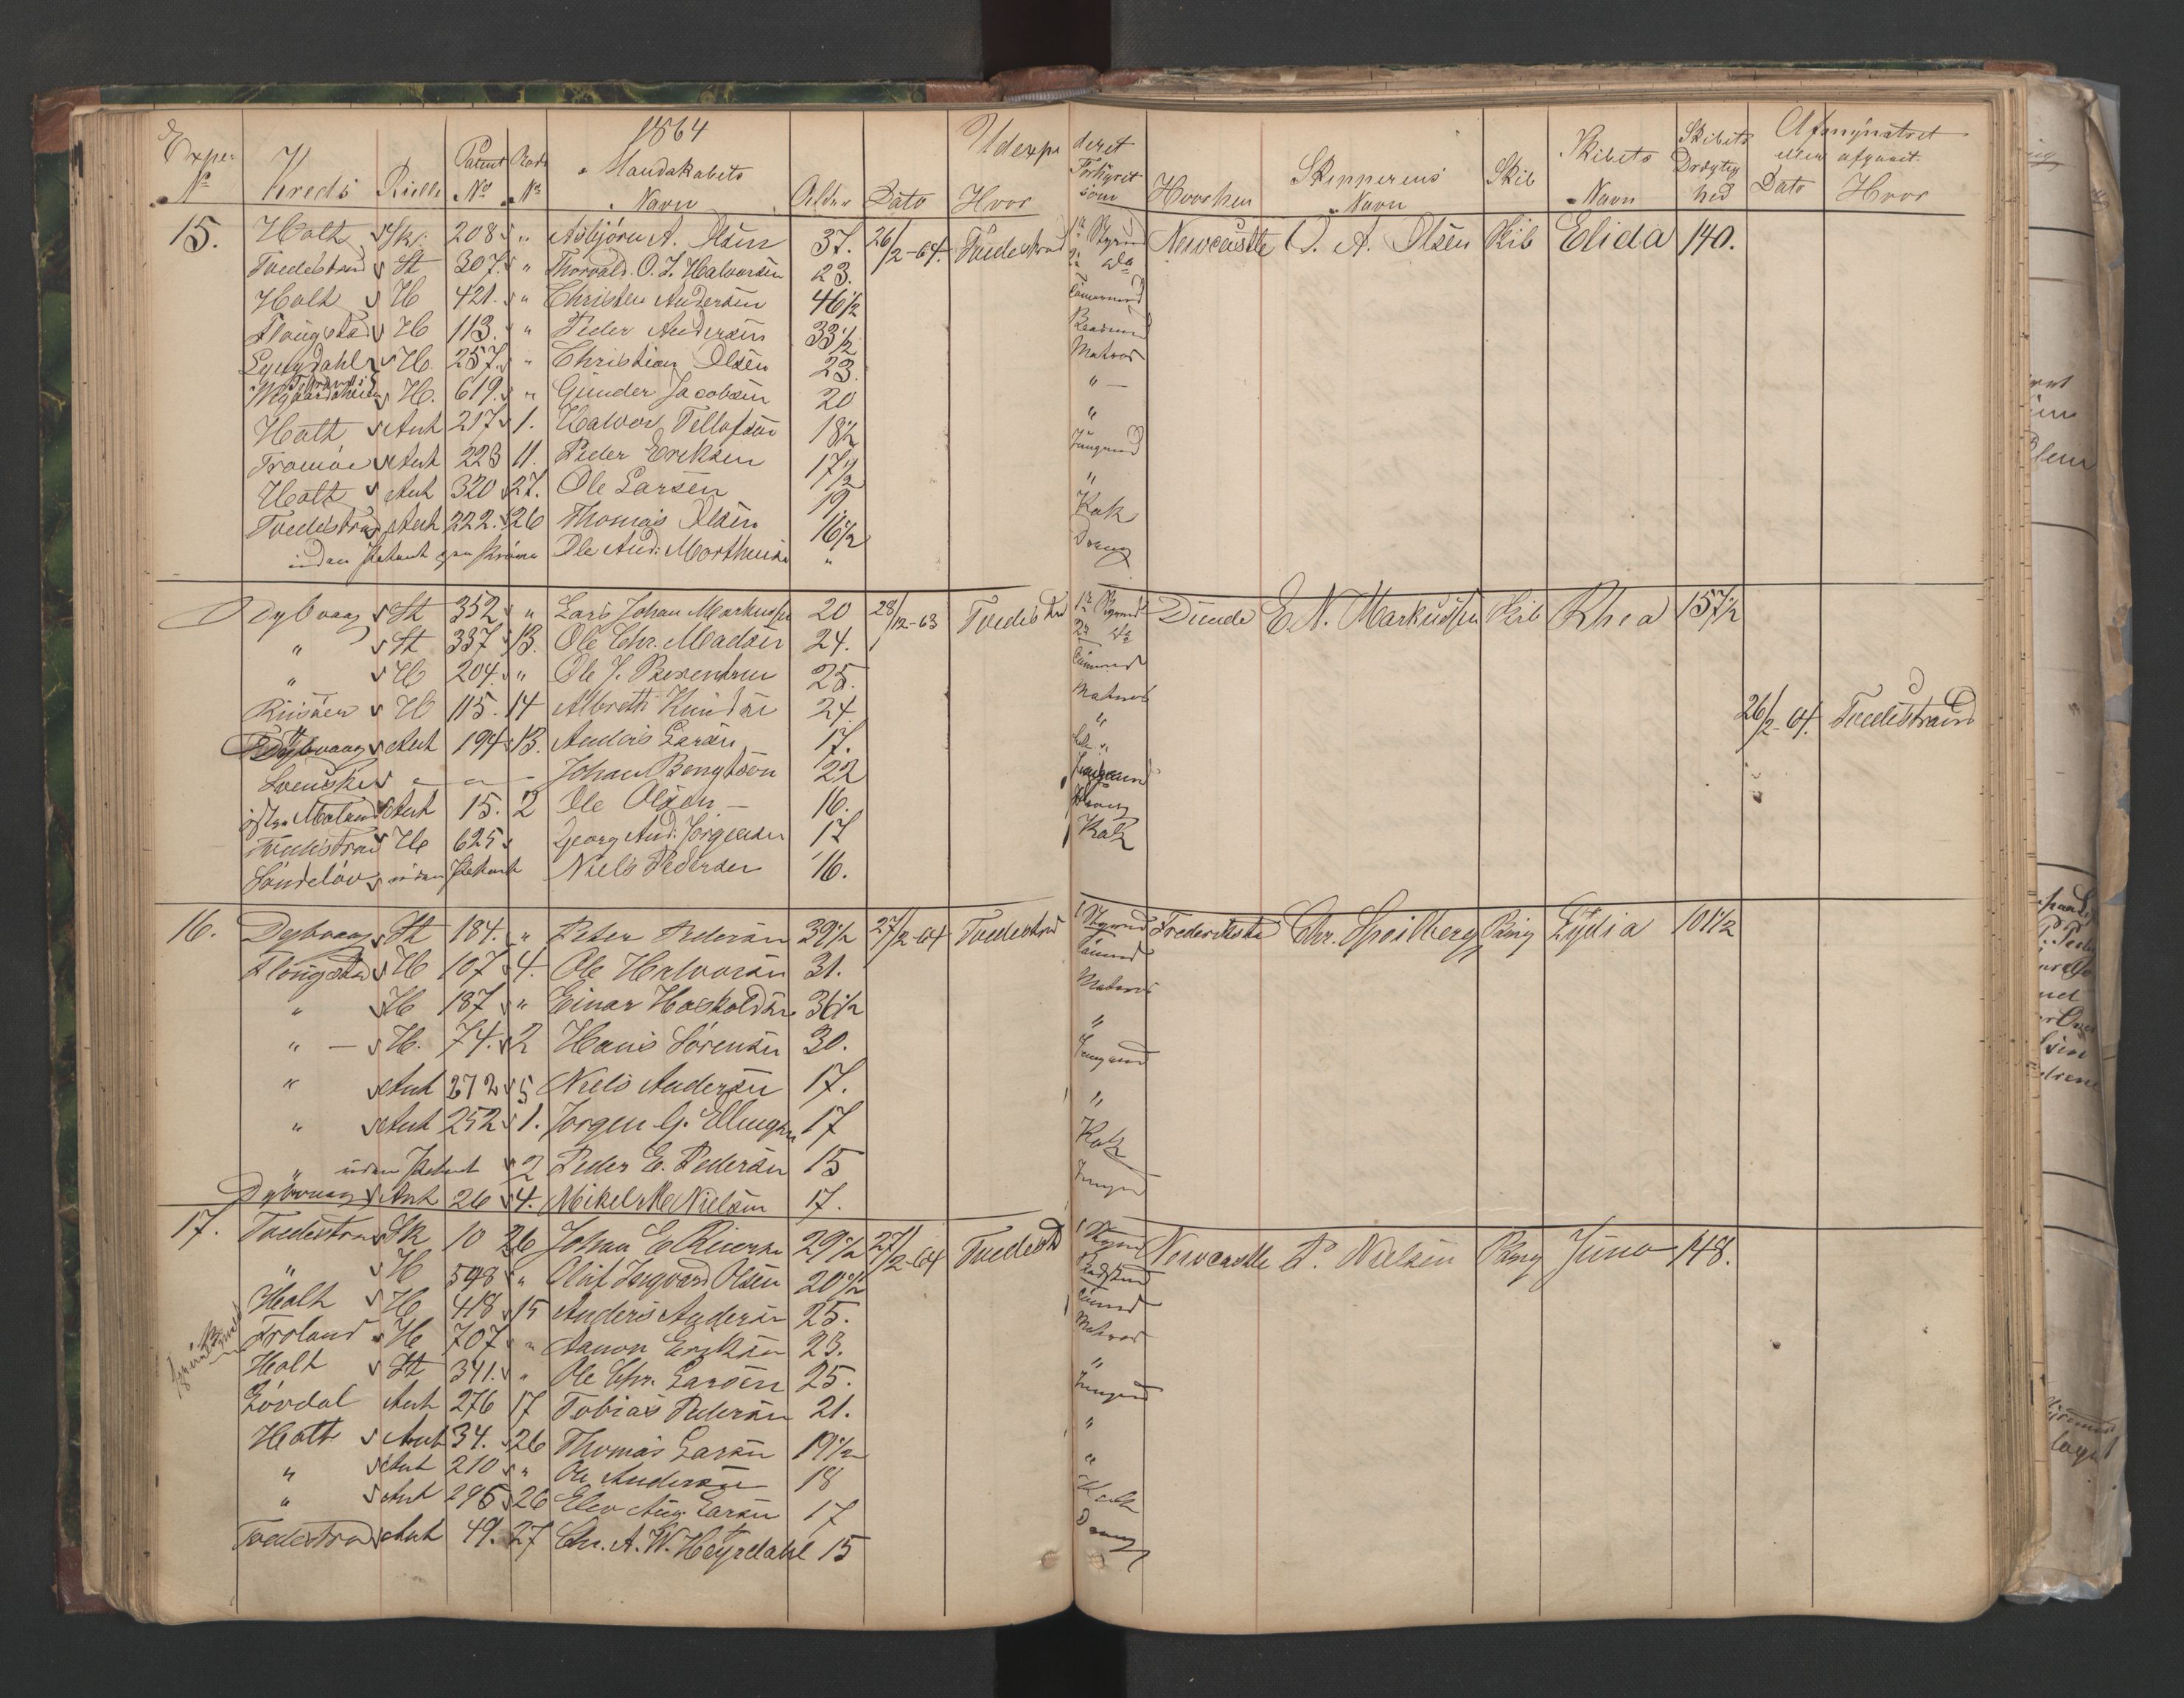 1864
Expe: No Kreds Rulle Patent No Rode No Mandskabets Navn Alder Dato Hvor Udexpederet Forhyret som Hvorhen Skipperens Navn Skib Skibets Navn Skibets Drægtighed Afmynstret eller afgaaet. Dato Hvor
15. Holt Sk: 208 " Asbjörn A. Olsen 37. 26/2-64. Tvedestrand 1ste Styrmd Newcastle O. A. Olsen Skib Elida 140.
Tvedestrand St 307. " Thorvald O. J. Halvorsen 23. 2n do
Holt H 421. " Christen Andersen 46 1/2 Tömmermd
Flougstad H 113. " Peder Andersen 33 1/2
Lyngdahl H. 257. " Christian Olsen 23. Matros
H. 619. " Gunder Jacobsen 20 " —
Holt Ant 217 1. Halvor Tellefsen 18 1/2 "
Tromöe Ant 223 11. Peder Eriksen 17 1/2 Jungmd
Holt Ant 320 27. Ole Larsen 19. "
Tvedestrand Ant 222. 26 Thomas Olsen 16 1/2 Kok
uden Patent Ole And: Morthens " Dreng
Dybvaag St 352 " Lars Johan Markussen 20 28/12-63 Tvedestrd 1ste Styrmd E. N. Markussen Skib Rhea 157 1/2
" St 337 13. Ole Chr. Madsen 24. 2n do
" H 204. " Ole J. 25. Tömmermd
Riisöer H 115. 14 Albreth 24. Matros 26/2-64. Tvedestrand
Dybvaag Ant 194 13. Anders Larsen 17. "
Svenske - - - Johan Bengtson 22
östre Moland Ant 15. 2 Ole Olsen — 16.
Tvedestrand H 625 Georg And. Jörgensen 17 Kok
Söndelöv uden Patent Niels Pedersen 16.
16. Dybvaag St 184. " Peter Pedersen 39 1/2 27/2-64 Tvedestrd 1 Styrmd Chr. Speilberg Brig Lydia 101 1/2
Flougstad H 107 4. Ole Halvorsen 31. Tömmd
" H 187 " Einar Haskoldsen 36 1/2 Matros
" — H. 74. 2 Hans Sörensen 30. "
" Ant 272 5 Niels Andersen 17. Jungmand
" Ant 252 1. Jörgen G. Ellingsen 17 "
" uden Patent 2 Peder E. Pedersen 15 Kok
Dybvaag Ant 26 4. Mikel Nielsen 17. Jungm
17. Tvedestrand Sk 10 26 Johan E 29 1/2 27/2-64 Tvedestd 1 Styrmd Newcastle P. Nielsen Brig Juno 148.
" H 548 " Oluf Ingvard Olsen 20 1/2
Holt H 418 15 Anders Andersen 25. Tömmd
Froland H 707 " Aanon Eriksen 23. Matros
Holt St 341. " Ole Chr. Larsen 25. "
Lövdal Ant 276 17 Tobias Pedersen 21. Jungmd
Holt Ant 34. 26 Thomas Larsen 19 1/2 "
" Ant 210 " Ole Andersen 18 "
" Ant 295 26 Elev Aug. Larsen 17 Kok
Tvedestrand Ant 49. 27 Chr. A. W. Heyerdahl 15 Dreng